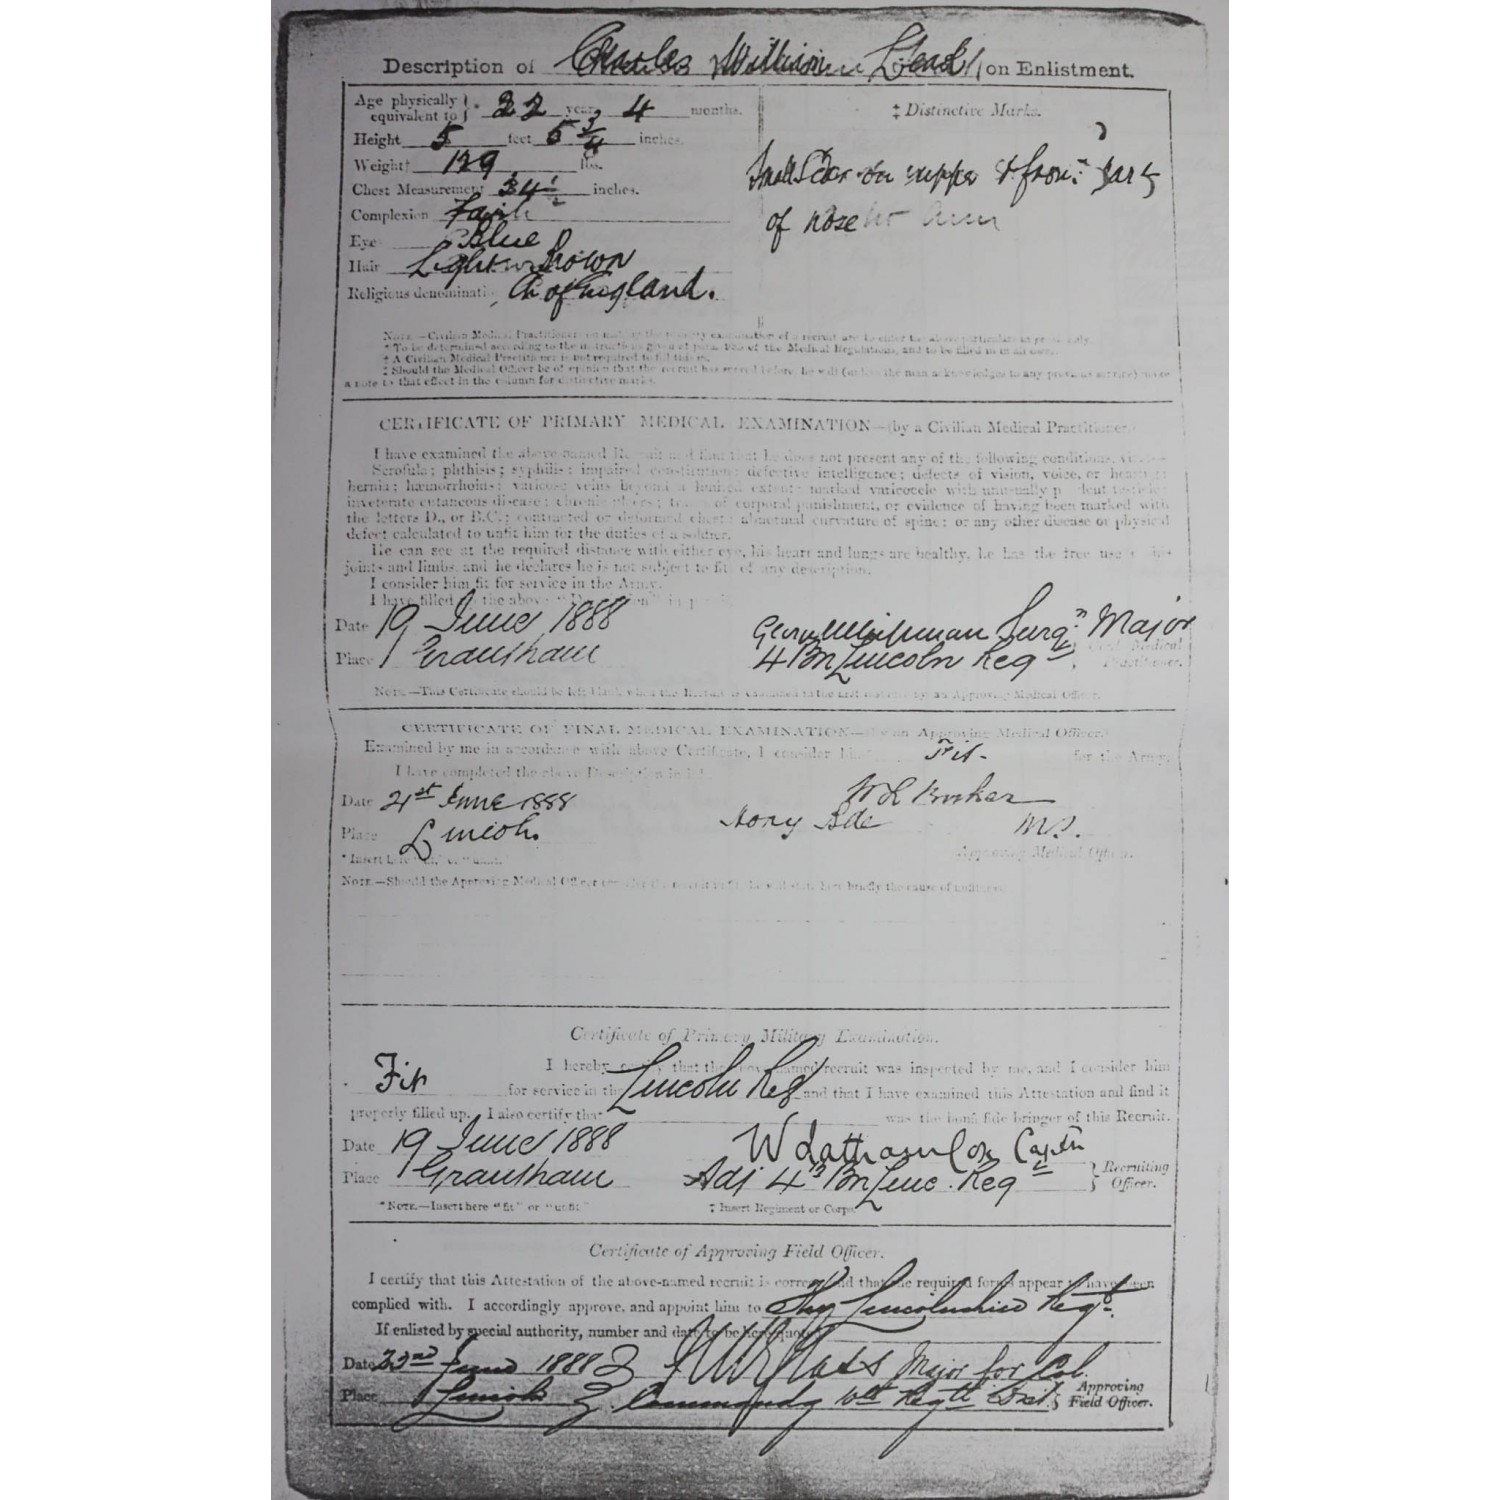 Description of Charles William Lead on Enlistment.
Age physically equivalent to 22 years 4 months.
Height 5 feet 5 3/4 inches.
Weight† 129 lbs.
Chest Measurement 34 1/2 inches.
Complexion
Eyes Blue
Hair Light Brown
Religious denomination Ch of England.
‡ Distinctive Marks.
Small Scar on upper & front part
of nose
NOTE.—Civilian Medical Practitioner on making the primary examination of a recruit are to enter the above particulars in
* To be determined according to the instructions given at para. of the Medical Regulations, and to be filled in in all cases.
† A Civilian Medical Practitioner is not required to fill this in.
‡ Should the Medical Officer be of opinion that the recruit has served before, he will (unless the man acknowledges to any previous service) make
a note to that effect in the column for distinctive marks.
CERTIFICATE OF PRIMARY MEDICAL EXAMINATION—(by a Civilian Medical Practitioner.)
I have examined the above-named Recruit and find that he does not present any of the following conditions, viz.:—
Scrofula; phthisis; syphilis; impaired constitution; defective intelligence; defects of vision, voice, or hearing;
hernia; hæmorrhoids; varicose veins beyond a limited extent; marked varicocele with unusually pendent testicle;
inveterate cutaneous disease; chronic ulcers; traces of corporal punishment, or evidence of having been marked with
the letters D., or B.C.; contracted or deformed chest; abnormal curvature of spine; or any other disease or physical
defect calculated to unfit him for the duties of a soldier.
He can see at the required distance with either eye, his heart and lungs are healthy, he has the free use of his
joints and limbs, and he declares he is not subject to fits of any description.
I consider him fit for service in the Army.
I have filled in the above "Description" in
Date 19 June 1888
Place Grantham
Surgn Major
4 Bn Lincoln Regt
Civil Medical
Practitioner.
NOTE.—This Certificate should be left blank when the Recruit is examined in the first instance by an Approving Medical Officer.
CERTIFICATE OF FINAL MEDICAL EXAMINATION—(by an Approving Medical Officer.)
Examined by me in accordance with above Certificate, I consider him* Fit- for the Army.
I have completed the above Description in
Date 21st June 1888
Place Lincoln
M.S.
Approving Medical Officer.
* Insert here "fit," or "unfit."
NOTE.—Should the Approving Medical Officer consider the recruit unfit, he will state here briefly the cause of unfitness.
Certificate of Primary Military Examination.
I hereby certify that the above-named recruit was inspected by me, and I consider him
Fit for service in the Lincoln Reg and that I have examined this Attestation and find it
properly filled up. I also certify that was the bonâ fide bringer of this Recruit.
Date 19 June 1888
Place Grantham
W Latham Cox Captn
Adj 4th Bn Linc. Regt
Recruiting
Officer.
*NOTE.—Insert here "fit" or "unfit"
† Insert Regiment or Corps
Certificate of Approving Field Officer.
I certify that this Attestation of the above-named recruit is correct and that the required forms appear to have been
complied with. I accordingly approve, and appoint him to The Lincolnshire Regt.
If enlisted by special authority, number and date to be here quoted
Date 22nd June 1888
Place Lincoln
Major for Col.
Commandg 10th Regtl Dist.
Approving
Field Officer.